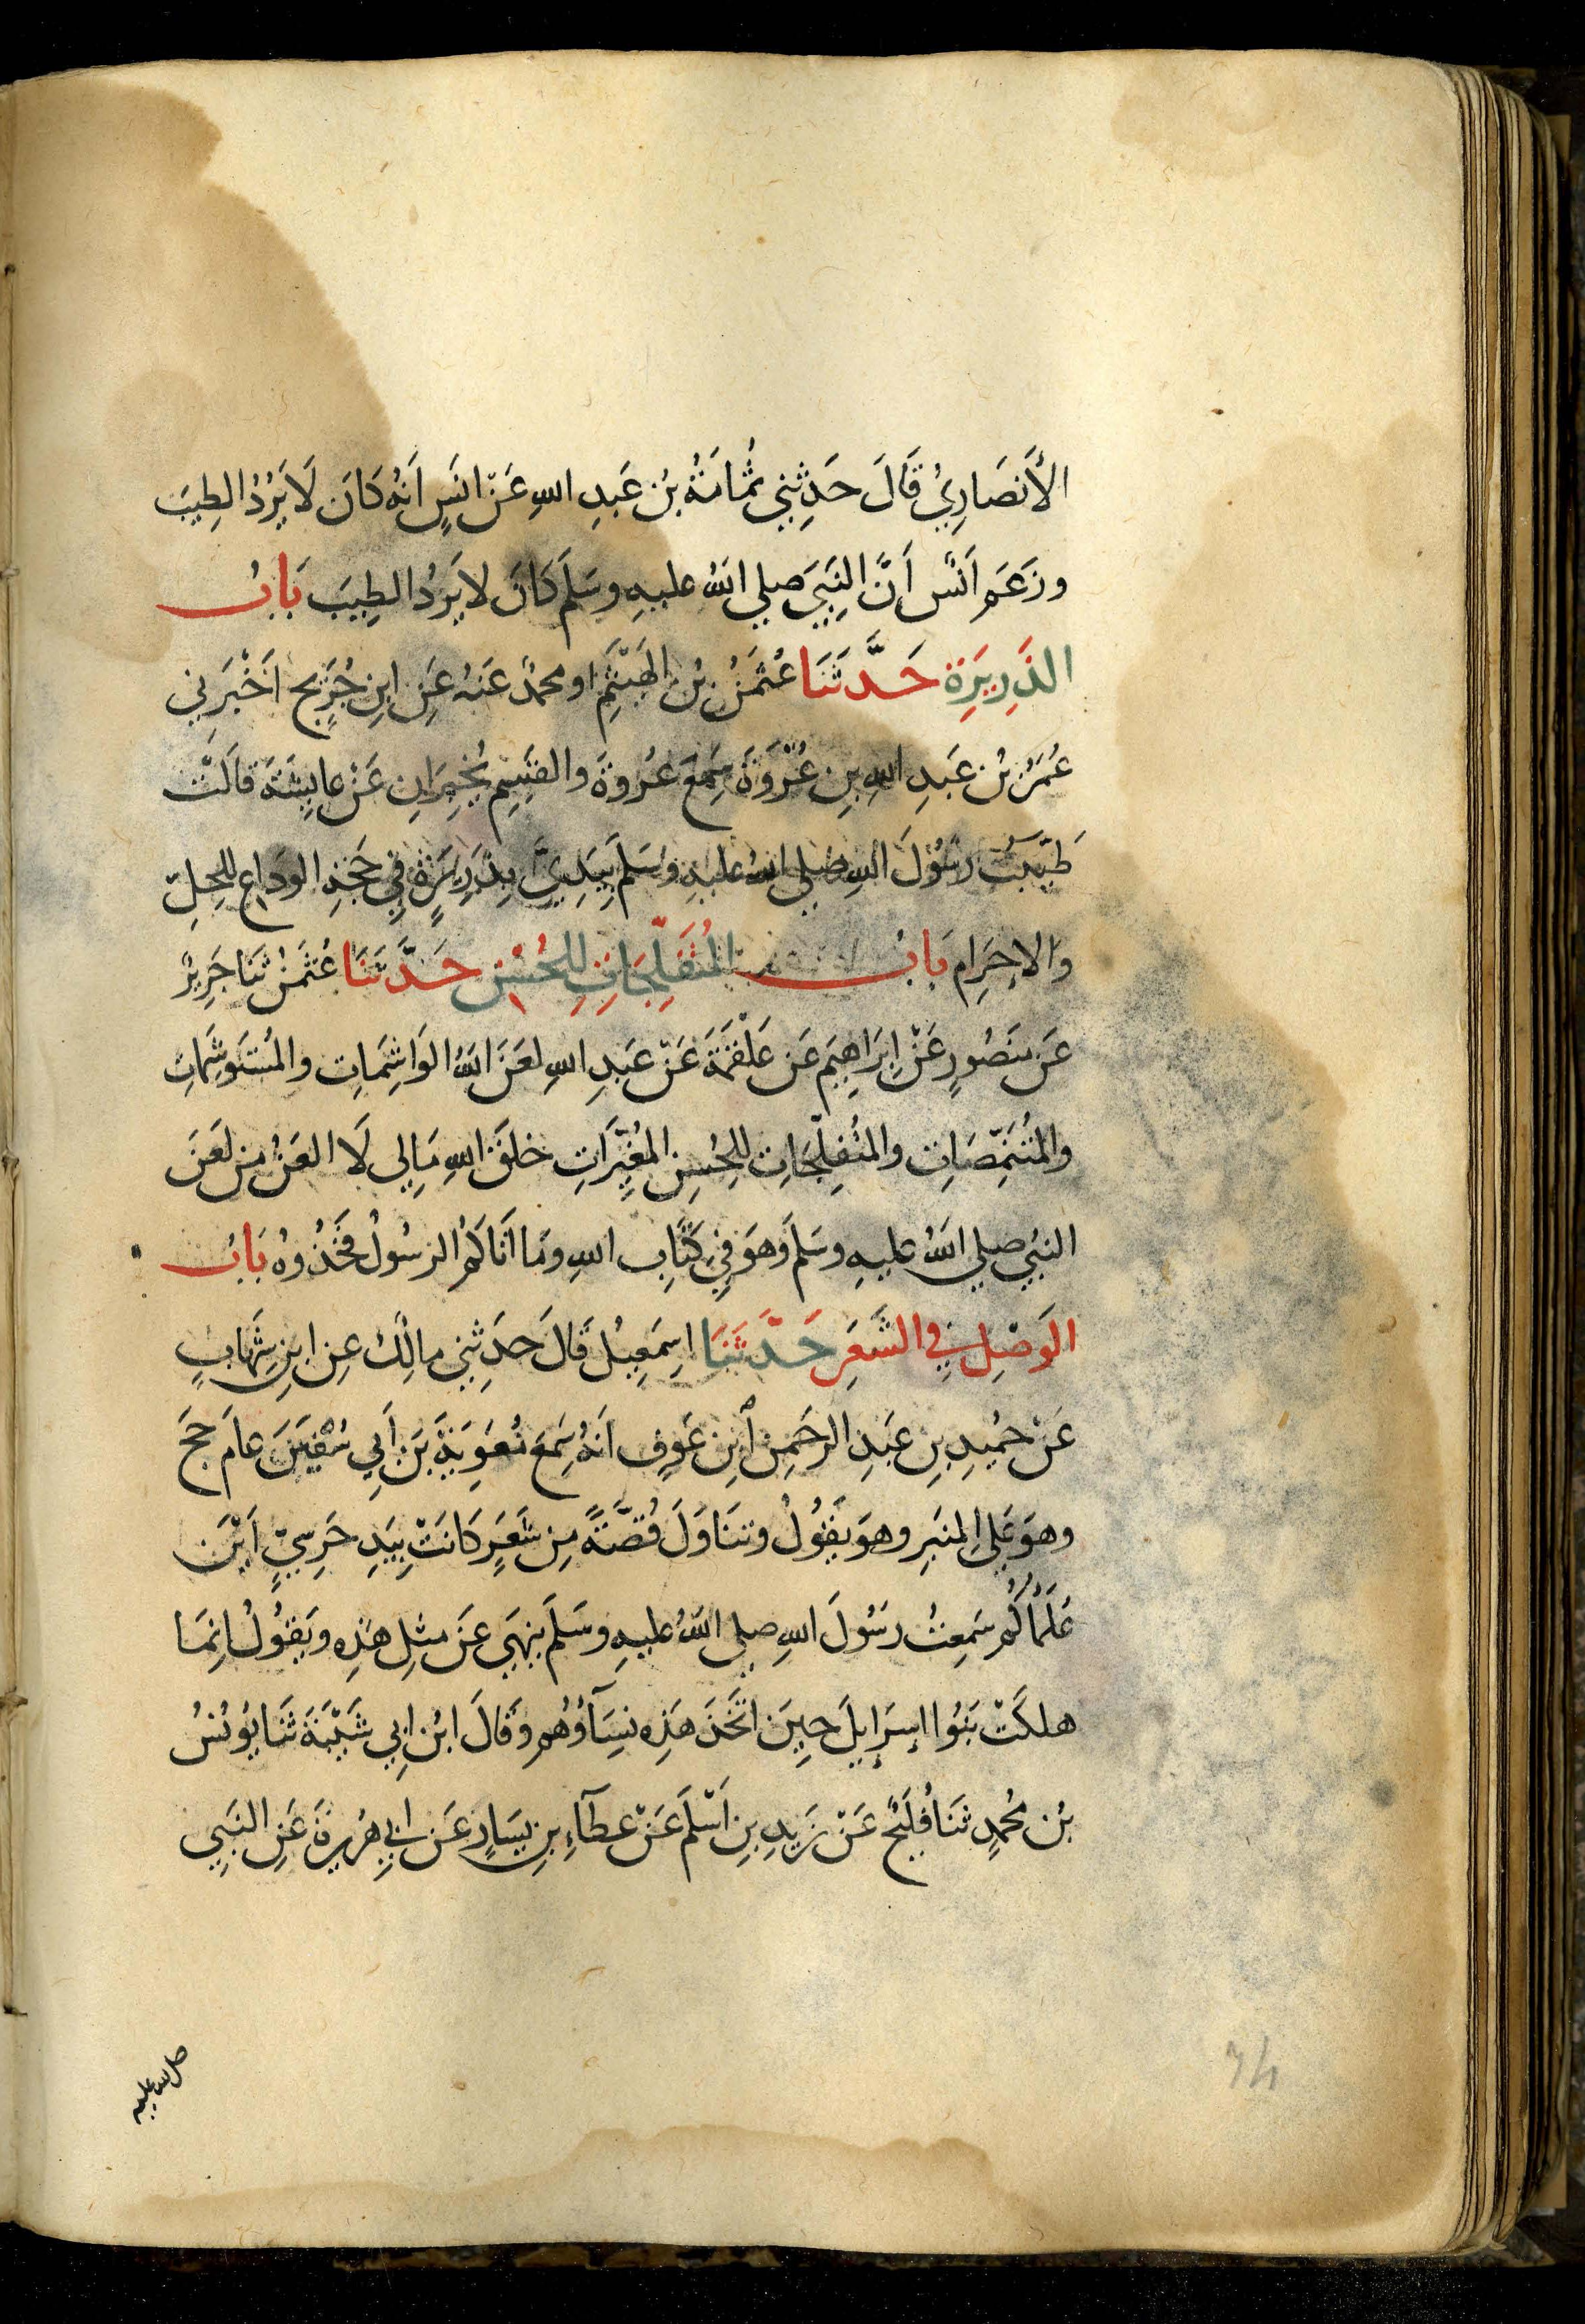 الأَنصَارِيُّ قَالَ حَدثَنِي ثُمَامَةُ بْنُ عَبدِ اللهِ عَنْ اَنَسٍ اَنَّهُ كَانَ لَا يَرُدُّ الطِيبَ
وزَعَمَ اَنَسٌ أَنَّ النَّبِيَ صلي اللهُ عليهِ وسَلَّمَ كَانَ لا يَرُدُ الطِيبَ بَابُ
الذَّرِيرَةِ حَدَّثَنَا عُثمَنُ بْنُ الهَيْثَمِ او محمدٌ عَنهُ عَنِ ابنِ جُرَيجٍ اَخْبَرَنِي
عُمَرُ بْنُ عَبدِ اللهِ بنِ عُرْوَةَ سَمِعَ عُروَةَ والقَسِمَ يُخبِرَانِ عَنْ عايِشَةَ قَالَتْ
طَيَّبتُ رَسُولَ اللهِ صلي اللهُ عليهِ وسَلَّمَ بِيَدِيَّ بِذَرِيرَةٍ فِي حَجَةِ الوَدَاعِ لِلحِلِّ
وَالاِحرَامِ بَابُ المُتَفَلِّجَاتِ لِلحُسْنِ حَدَّثَنَا عُثمَنُ ثَنَا جَرِيرٌ
عَن مَنصُورٍ عَنْ اِبرَاهِيمَ عَن عَلْقَمَةَ عَنْ عَبدِ اللهِ لَعَنَ اللهُ الوَاشِمَاتِ والمُستَوشِمَاتِ
والمُتَنَمِّصَاتِ والمُتَفَلِّجَاتِ لِلحُسنِ المُغَيِّرَاتِ خَلقَ اللهِ مَا لِي لَا اَلعَنُ مَن لَعَنَ
النبيُ صلي اللهُ عليهِ وسَلَّمَ وَهوَ فِي كِتَابِ اللهِ ومَا اَتَاكُمُ الرسُولُ فَخُذُوهُ بَابُ
الوَصْلِ فِي الشَّعَرِ حَدَّثَنَا اِسمَعِيلُ قَالَ حَدَثَنِي مالِكٌ عنِ ابنِ شِهَابٍ
عَنْ حُمَيدِ بنِ عَبدِ الرحَمنِ ابنِ عَوفٍ اَنَّهُ سَمِعَ مُعَوِيَةَ بنَ أَبِي سُفيَنَ عامَ حَجَّ
وهوَ عَلي المِنبَرِ وهوَ يَقُولُ وتَنَاوَلَ قُصَّةً مِن شَعَرٍ كَانَتْ بِيَدِ حَرَسِيٍّ اَيْنَ
عُلَمَاُكُم سَمِعتُ رَسُولَ اللهِ صلي اللهُ عليهِ وسَلَّمَ يَنهَي عَن مثلِ هَذِهِ ويَقُولُ اِنَّمَا
هلَكَتْ بَنُوا اِسرَايلَ حِينَ اتَّخَذَ هَذِهِ نِسَآؤُهُم وَقَالَ ابْنُ اَبِي شَيْبَةَ ثَنَا يُونُسُ
بْنُ مُحمدٍ ثَنَا فُلَيْحٌ عَنْ زَيدِ بنِ اَسْلَمَ عَنْ عطَآءِ بنِ يسَارٍ عَن ابي هُرَيرَةَ عَنِ النبَيِ
صلى الله عليه